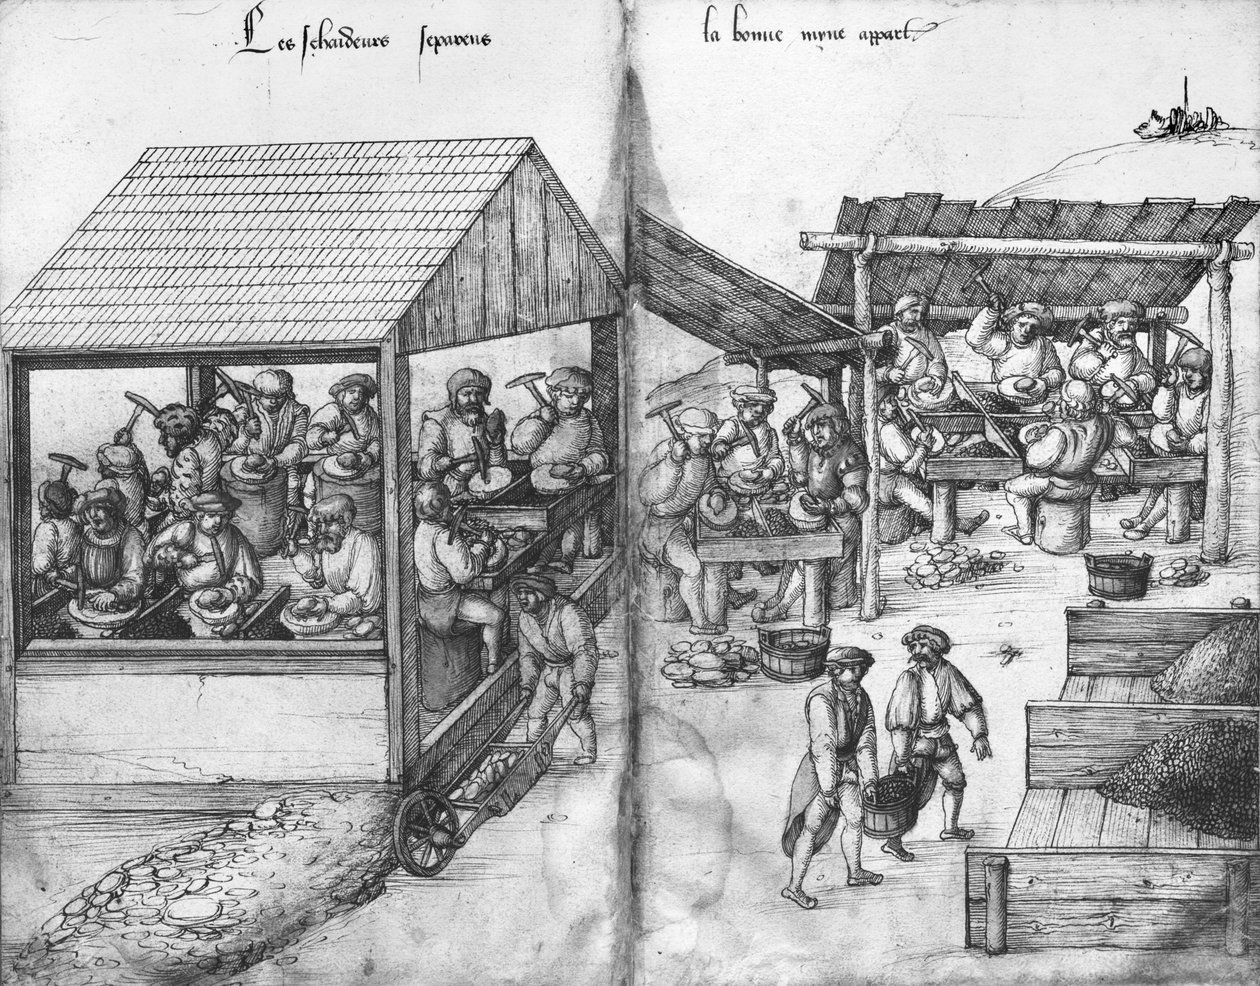 Les schaideurs separens
la bonne myne appart